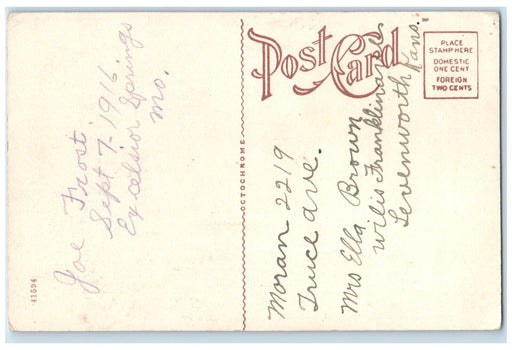 Post Card
PLACE
STAMP HERE
DOMESTIC
ONE CENT
FOREIGN
TWO CENTS
Joe Frost
Sept 7-1916
Excelsior Springs
Mo.
OCTOCHROME
41594
Moran 2219
Truce ave.
Mrs Ella Brown
Willis Franklin
Levenworth Kans.